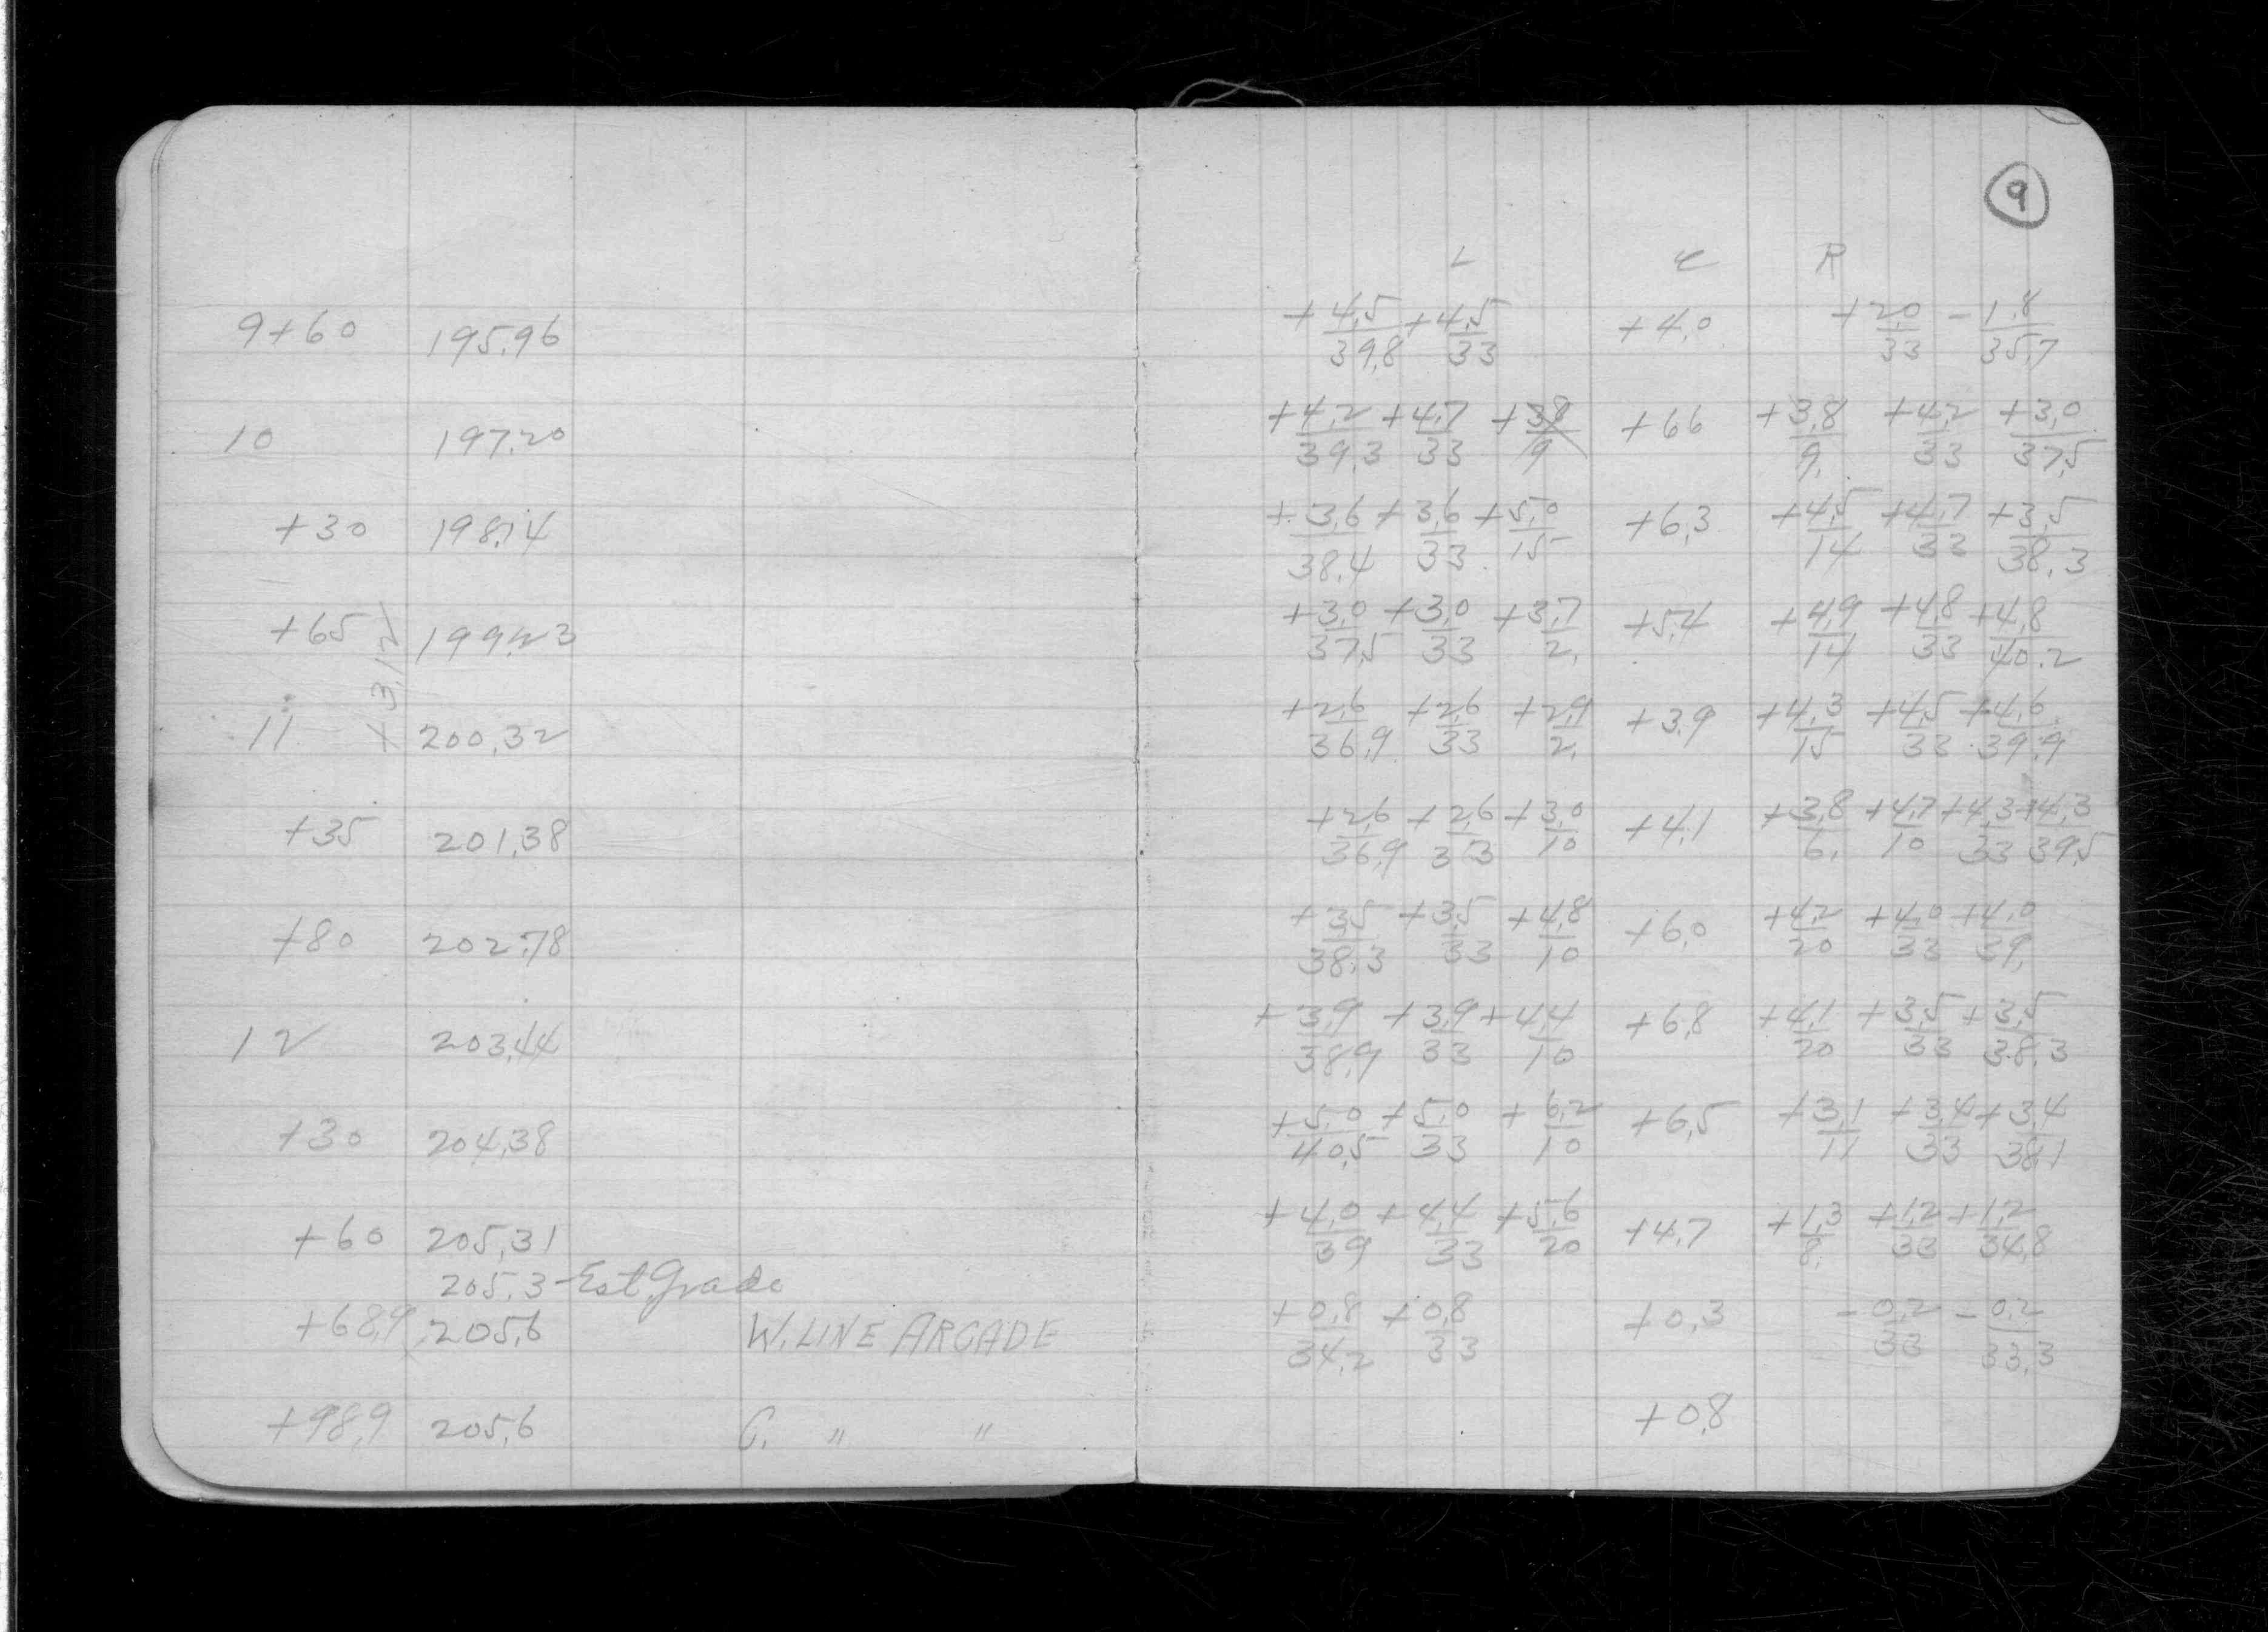 9
L ℄ R
9+60 195.96 +4.5/39.8 +4.5/33 +4.0 +2.0/33 -1.8/35.7
10 197.20 +4.2/39.3 +4.7/33 +3.8/9 +6.6 +3.8/9. +4.2/33 +3.0/37.5
+30 198.14 +3.6/38.4 +3.6/33 +5.0/15 +6.3 +4.5/14 +4.7/33 +3.5/38.3
+65 199.23 +3.0/37.5 +3.0/33 +3.7/2. +5.4 +4.9/14 +4.8/33 +4.8/40.2
+3.12
11 200.32 +2.6/36.9 +2.6/33 +2.9/2. +3.9 +4.3/15 +4.5/33 +4.6/39.9
+35 201.38 +2.6/36.9 +2.6/33 +3.0/10 +4.1 +3.8/6. +4.7/10 +4.3/33 +4.3/39.5
+80 202.78 +3.5/38.3 +3.5/33 +4.8/10 +6.0 +4.2/20 +4.0/33 +4.0/39.
12 203.44 +3.9/38.9 +3.9/33 +4.4/10 +6.8 +4.1/20 +3.5/33 +3.5/38.3
+30 204.38 +5.0/40.5 +5.0/33 +6.2/10 +6.5 +3.1/11 +3.4/33 +3.4/38.1
+60 205.31 +4.0/39 +4.4/33 +5.6/20 +4.7 +1.3/8. +1.2/33 +1.2/34.8
205.3 Est. Grade
+68.9 205.6 W. LINE ARCADE +0.8/34.2 +0.8/33 +0.3 -0.2/33 -0.2/33.3
+98.9 205.6 C. " " +0.8